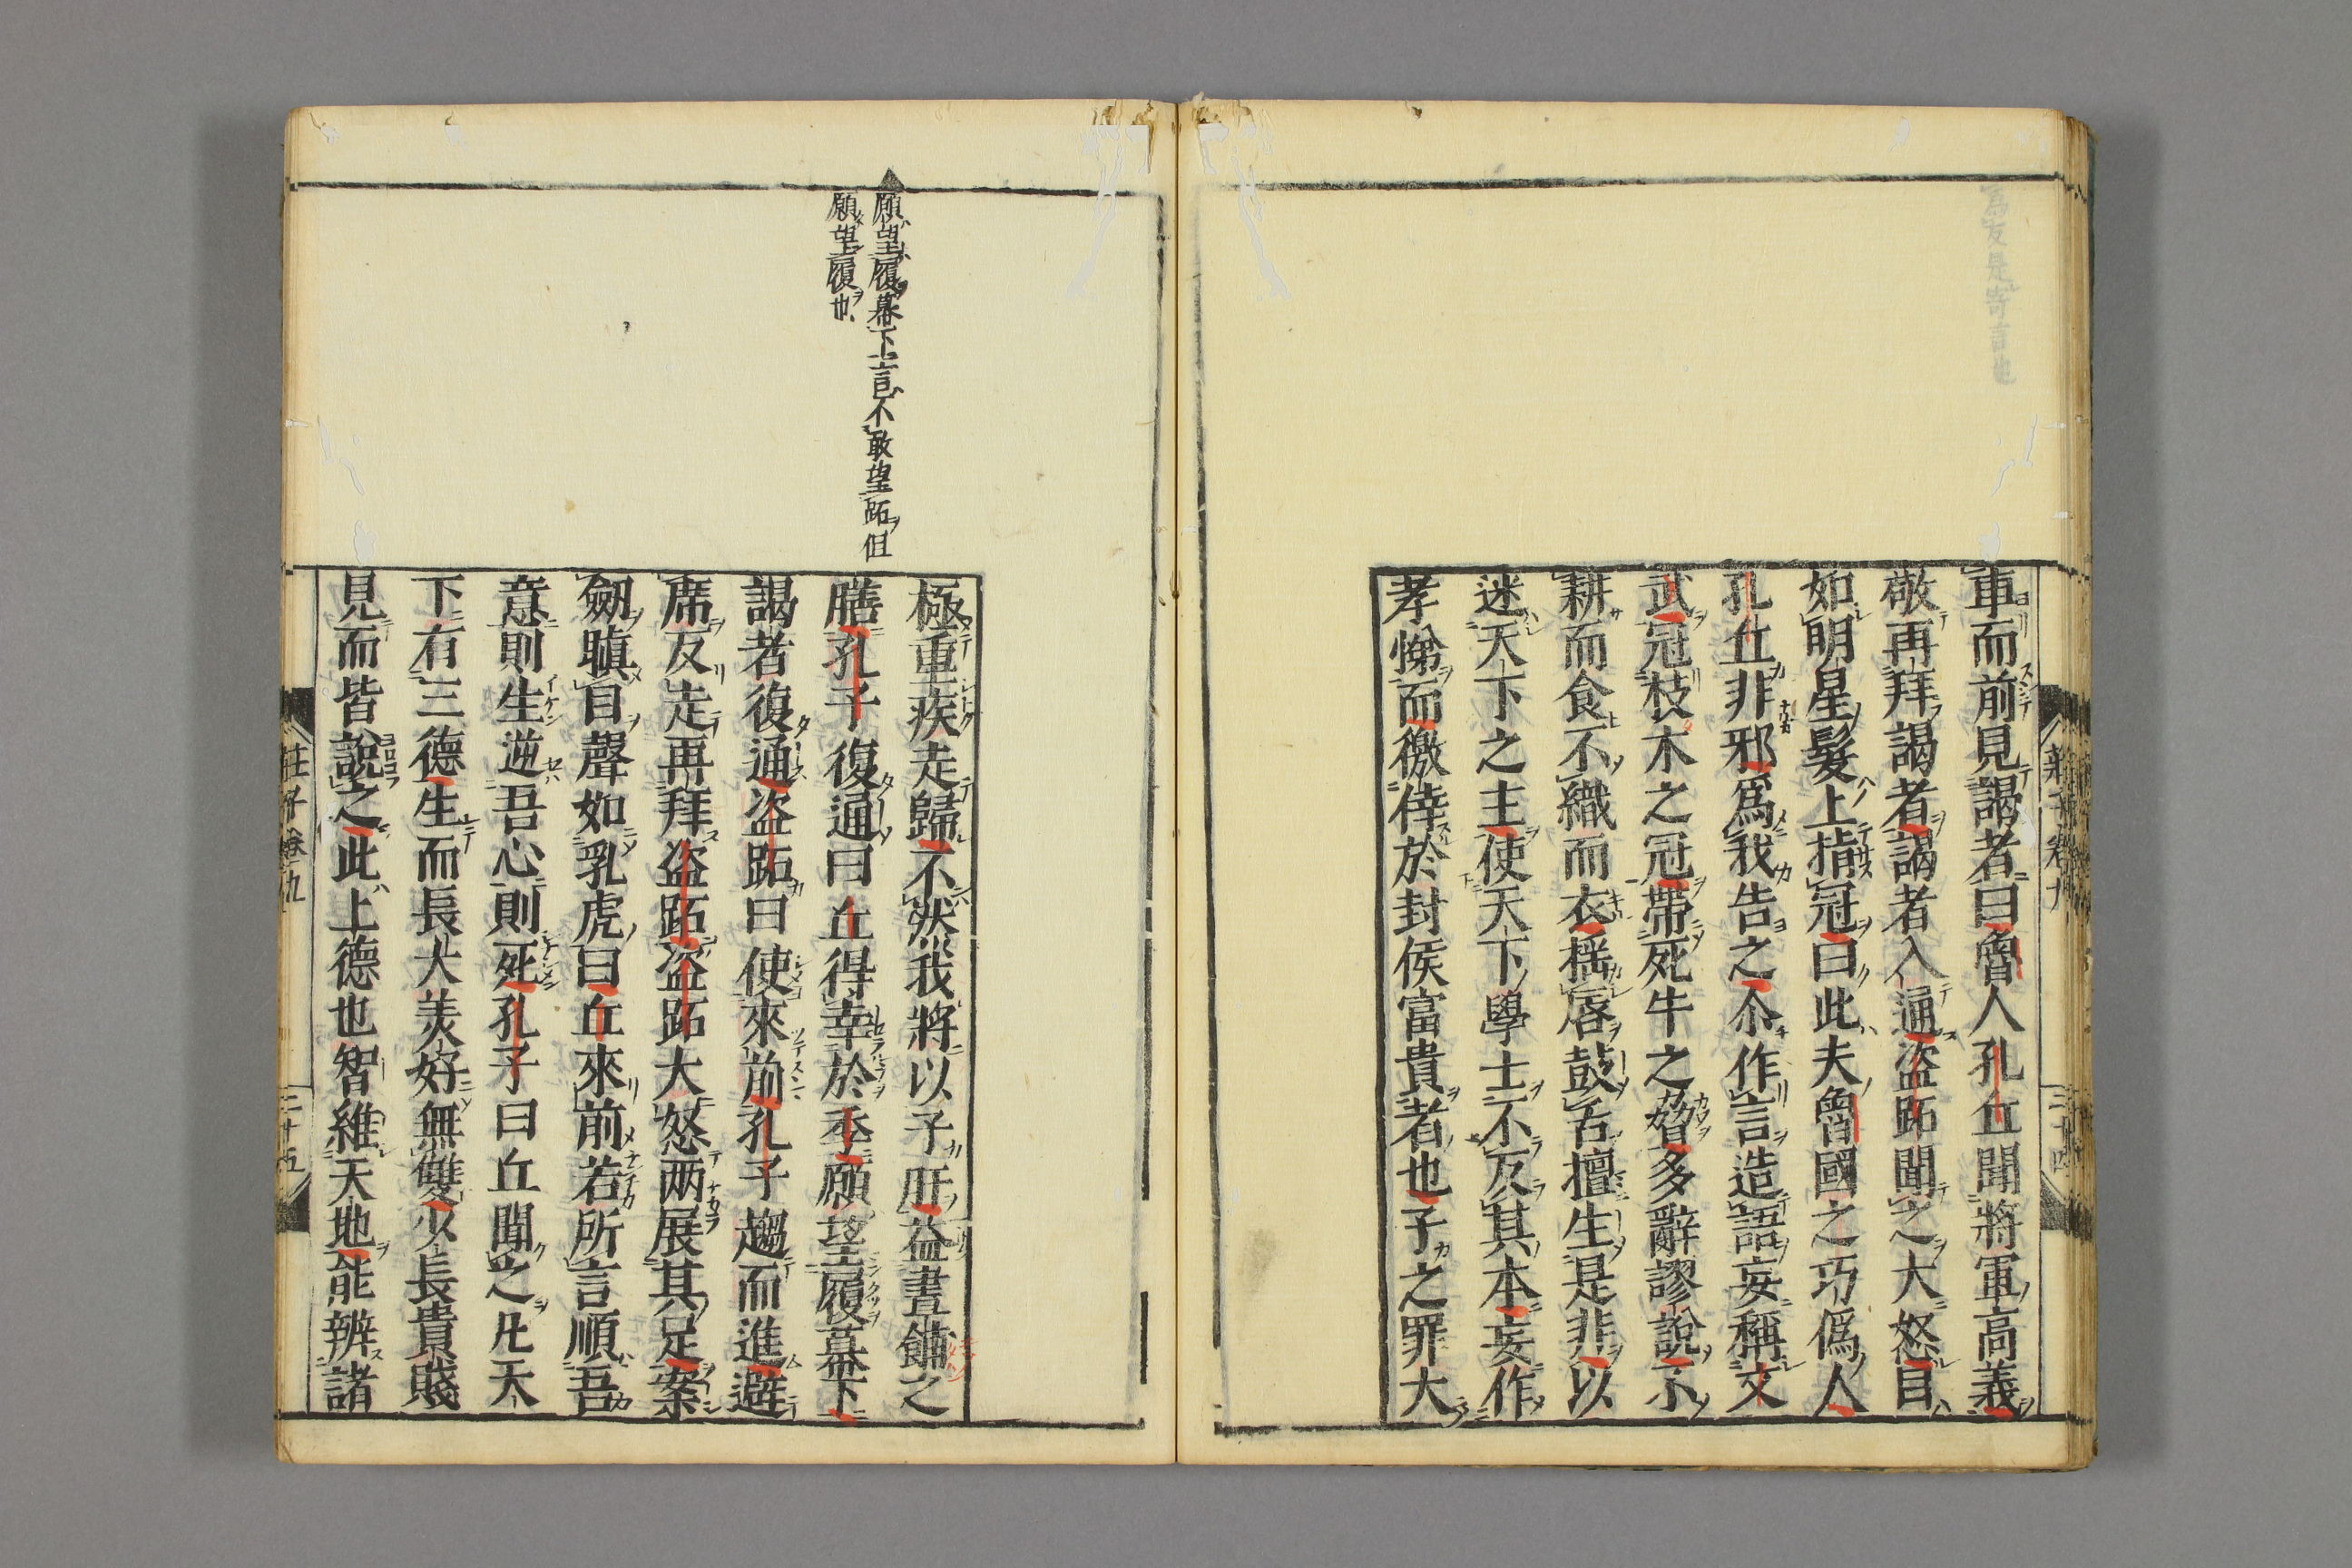 車而前見謁者曰魯人孔丘聞將軍高義
敬再拜謁者謁者入通盜跖聞之大怒目
如明星髮上指冠曰此夫魯國之巧僞人
孔丘非邪爲我告之尒作言造語妄稱文
武冠枝木之冠帶死牛之脅多辭謬說不
耕而食不織而衣搖唇鼓舌擅生是非以
迷天下之主使天下學士不反其本妄作
孝悌而徼倖於封侯富貴者也子之罪大
願望履幕下言不敢望跖但
願望履也
極重疾走歸不然我將以子肝益晝餔之
膳孔子復通曰丘得幸於季願望履幕下
謁者復通盜跖曰使來前孔子趨而進避
席反走再拜盜跖盜跖大怒两展其足案
劔瞋目聲如乳虎曰丘來前若所言順吾
意則生逆吾心則死孔子曰丘聞之凡天
下有三德生而長大美好無雙少長貴賤
見而皆說之此上德也智維天地能辨諸
莊子卷九
二十五